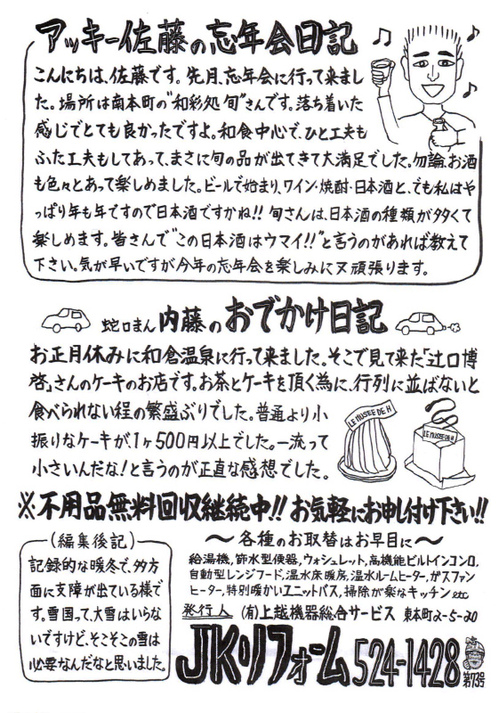 アッキー佐藤の忘年会日記
こんにちは、佐藤です。先月、忘年会に行って来まし
た。場所は南本町の"和彩処 旬"さんです。落ち着いた
感じでとても良かったですよ。和食中心で、ひと工夫も
ふた工夫もしてあって、まさに旬の品が出てきて大満足でした。勿論、お酒
も色々とあって楽しめました。ビールで始まり、ワイン・焼酎・日本酒と、でも私はや
っぱり年も年ですので日本酒ですかね!! 旬さんは、日本酒の種類が多くて
楽しめます。皆さんで"この日本酒はウマイ!!"と言うのがあれば教えて
下さい。気が早いですが今年の忘年会を楽しみに又頑張ります。
蛇口まん 内藤の おでかけ日記
お正月休みに和倉温泉に行って来ました。そこで見て来た「辻口博
啓」さんのケーキのお店です。お茶とケーキを頂く為に、行列に並ばないと
食べられない程の繁盛ぶりでした。普通より小
振りなケーキが、1ヶ500円以上でした。一流って
小さいんだな!と言うのが正直な感想でした。
LE MUSEE DE H
LE MUSEE DE H
※不用品無料回収継続中!! お気軽にお申し付け下さい!!
(編集後記)
記録的な暖冬で、多方
面に支障が出ている様で
す。雪国って、大雪はいらな
いですけど、そこそこの雪は
必要なんだなと思いました。
〜各種のお取替はお早目に〜
給湯機、節水型便器、ウォシュレット、高機能ビルトインコンロ、
自動型レンジフード、温水床暖房、温水ルームヒーター、ガスファン
ヒーター、特別暖かいユニットバス、掃除が楽なキッチン etc
発行人 (有)上越機器総合サービス 東本町2-5-20
JKリフォーム 524-1428
第73号